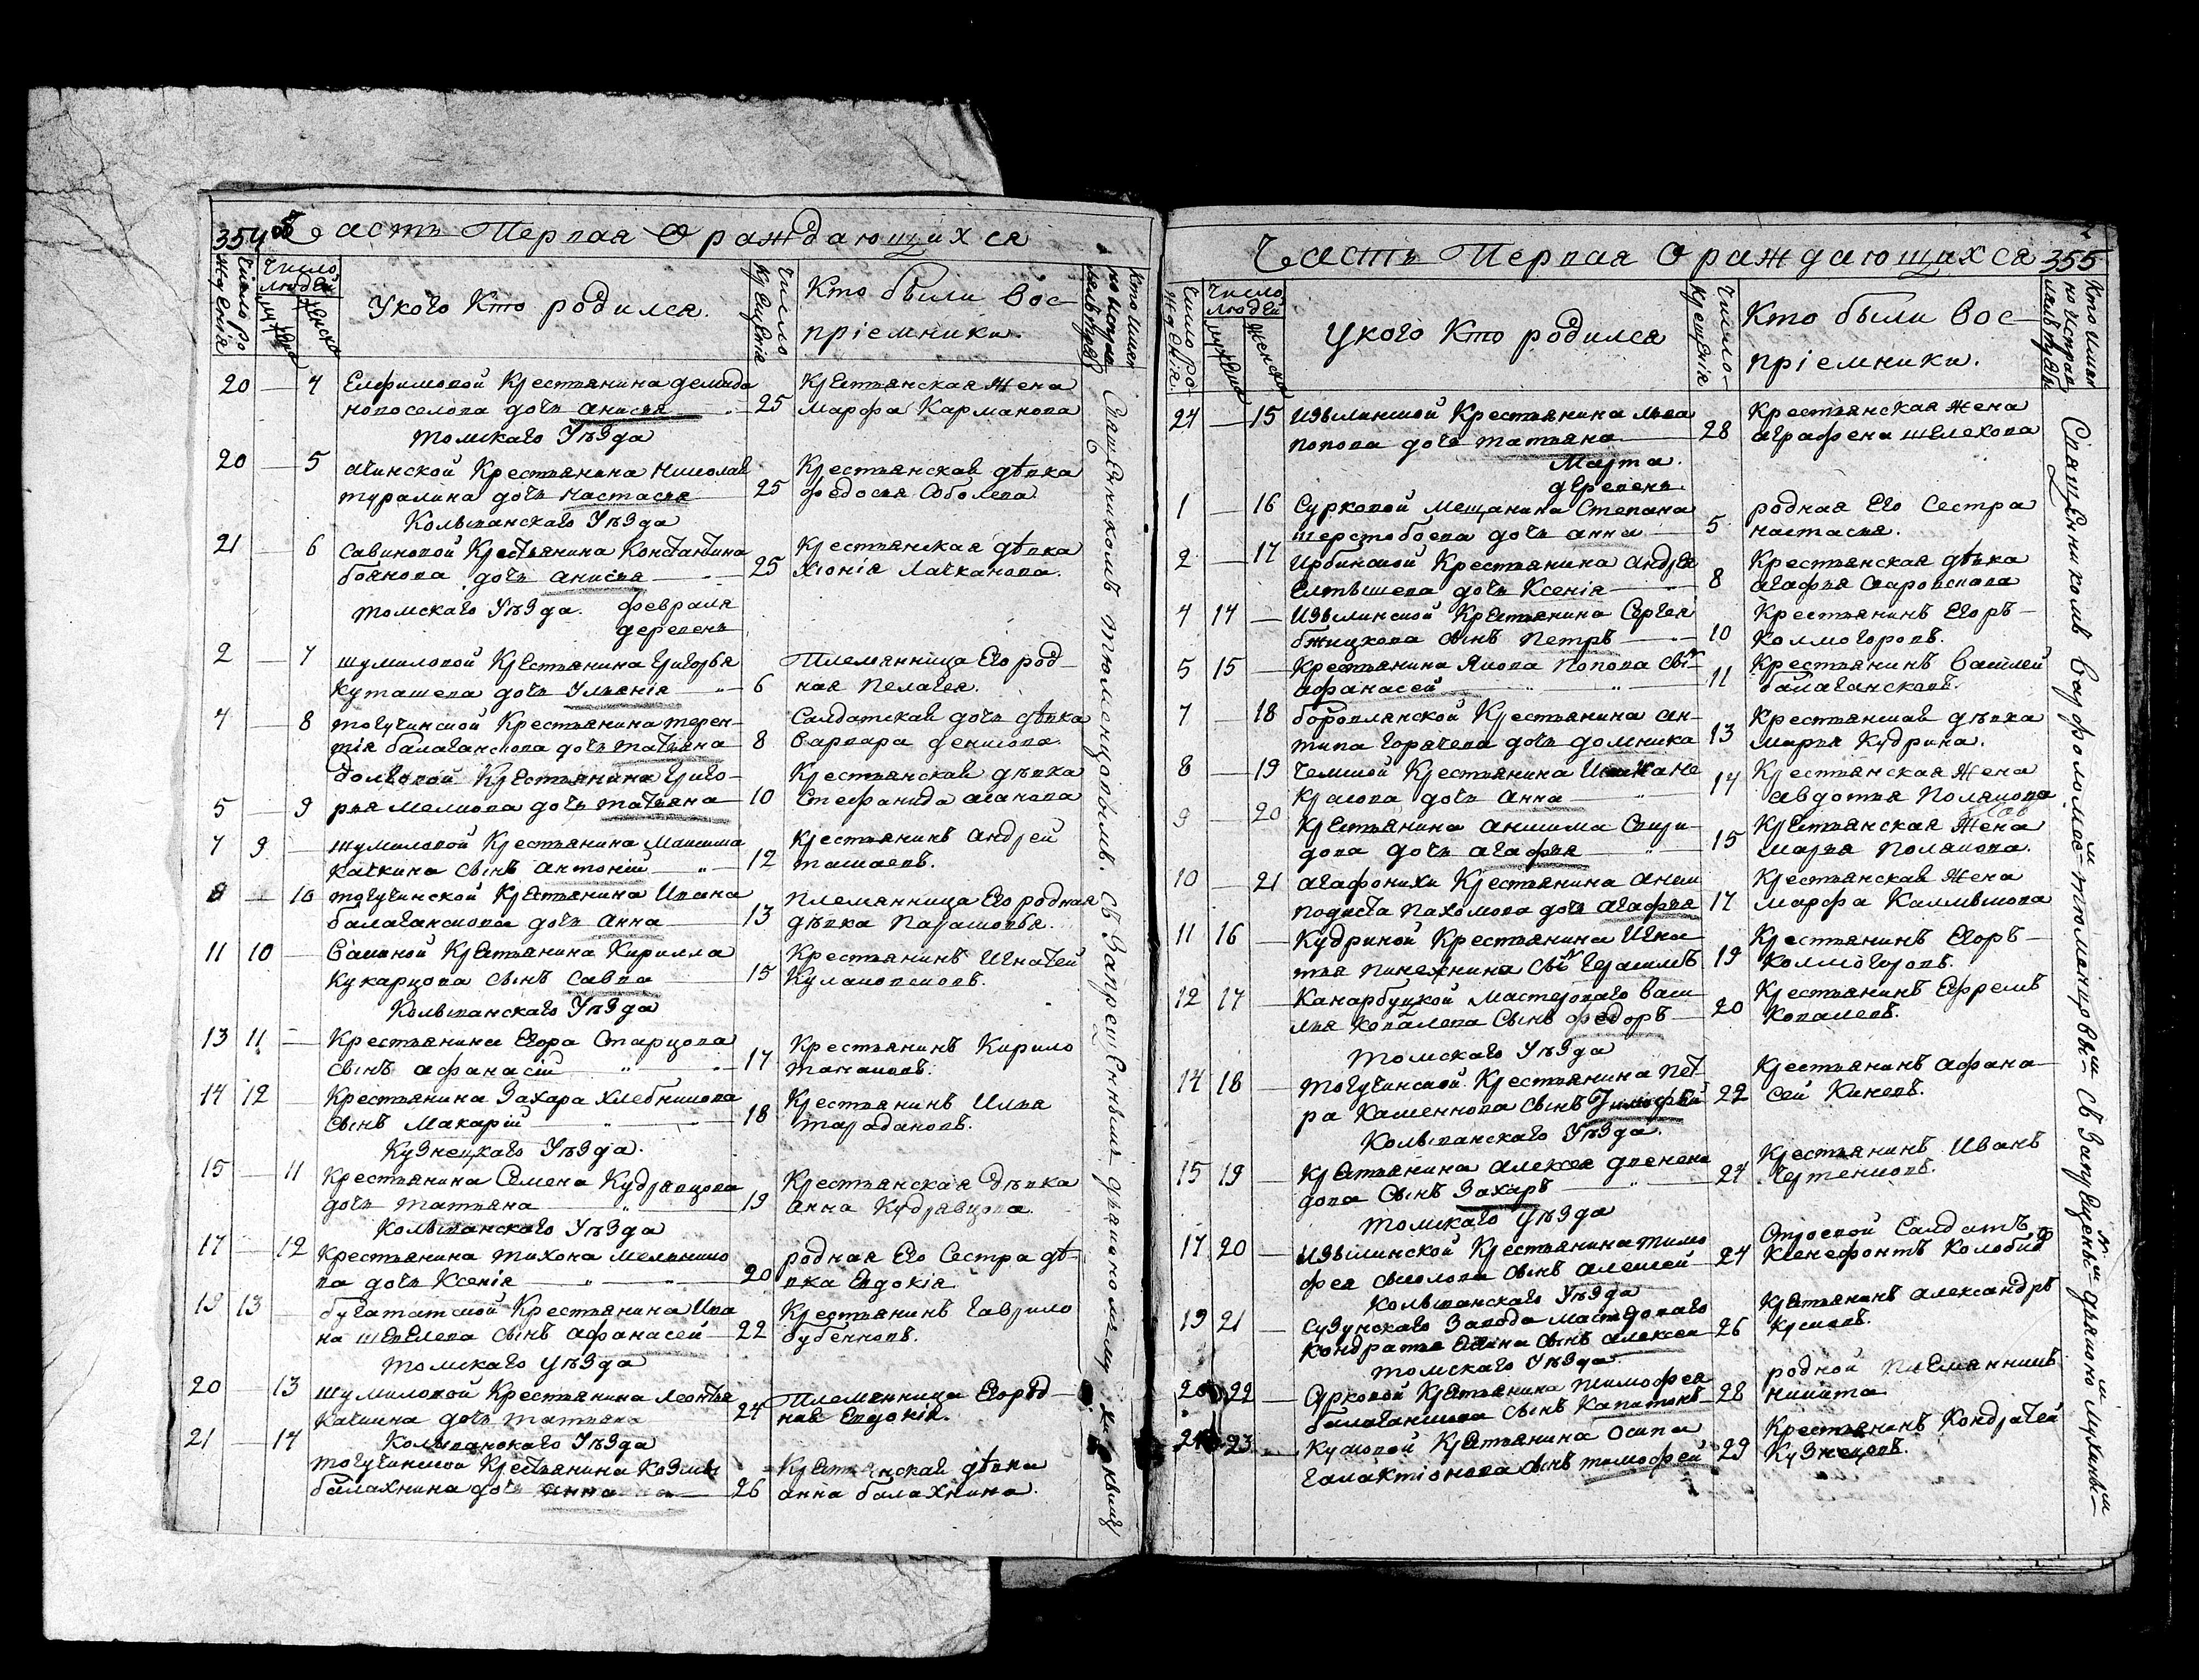 354 об
Часть Первая О раждающихся
Число рождения
Число людей
мужеска
женска
Укого Кто родился.
Число крещения
Кто были вос-
пріемники.
20 — 4 Елфимовой Крестьянина Демида
новоселова дочь анисья — 25
Крестьянская Жена
марфа Карманова
Томскаго Уѣзда
20 — 5 ачинской Крестьянина Николая
туралина дочь настасья 25
Крестьянская дѣвка
федосья Соболева
Колыванскаго Уѣзда
21 — 6 Савиновой Крестьянина Константина
боянова дочь анисья — 25
Крестьянская дѣвка
Хіонія Лачканова.
Томскаго Уѣзда. февраля
деревень
2 — 7 шумиловой Крестьянина Григорья
Куташева дочь Ульянія — 6
Племянница Его род-
ная пелагея.
4 — 8 тогучинской Крестьянина терен-
тія балаганскова дочь татьяна 8
Салдатская дочь дѣвка
варвара денисова.
Крестьянина Григо-
5 — 9 рья дочь татьяна — 10
Крестьянская дѣвка
Стефанида аганова
7 9 — шумиловой Крестьянина Максима
Качкина сынъ антоній — 12
Крестьянинъ андрей
ташаевъ.
8 — 10 тогучинской Крестьянина Ивана
балаганскова дочь анна 13
племянница Его родная
дѣвка Парасковья.
11 10 — Крестьянина Кирилла
Кукарцова сынъ Савва 15
Крестьянинъ Игнатей
Колыванскаго Уѣзда
13 11 — Крестьянина Егора Старцова
сынъ афанасій — 17
Крестьянинъ Кирило
14 12 — Крестьянина Захара Хлебникова
сынъ Макарій — 18
Крестьянинъ Илья
тарадановъ.
Кузнецкаго Уѣзда.
15 — 11 Крестьянина Семена Кудрявцова
дочь татьяна — 19
Крестьянская Дѣвка
анна Кудрявцова.
Колыванскаго Уѣзда
17 — 12 Крестьянина Тихона Мельнико
ва дочь Ксенія — 20
родная Его Сестра дѣ-
вка Евдокія
19 13 — бугататской Крестьянина Ива
на шевелева сынъ афанасей — 22
Крестьянинъ Гаврило
бубенновъ.
Томскаго уѣзда
20 — 13 шумиловой Крестьянина Леонтья
Качкина дочь татьяна 24
Племянница Его род-
ная Евдокія.
21 — 14 Колыванскаго Уѣзда
тогучинской Крестьянина Козмы
балахнина дочь анна — 26
Крестьянская дѣвка
анна балахнина.
Священникомъ Тюменцовымъ. съ Запрещеннымъ
Часть Первая О раждающихся 355
Число рождения
Число людей
мужеска
женска
Укого Кто родился
Число крещенія
Кто были вос-
пріемники.
24 — 15 Изылинской Крестьянина Льва
попова дочь татьяна — 28
Крестьянская Жена
аграфена шелехова
Марта.
деревень
1 — 16 Сурковой мещанина Степана
шерстобоева дочь анна — 5
родная Его Сестра
настасья.
2 — 17 Ирбинской Крестьянина андрея
Елтышева дочь Ксенія — 8
Крестьянская дѣвка
агафья
4 14 — Изылинской Крестьянина Сергея
сынъ Петръ — 10
Крестьянинъ Егоръ
Колмогоровъ.
5 15 — Крестьянина Якова попова сынъ
афанасей — 11
Крестьянинъ василей
балагансковъ.
7 — 18 боровлянской Крестьянина ан-
типа горячева дочь домника 13
Крестьянская дѣвка
марья Кудрина.
8 — 19 Чемской Крестьянина
дочь анна — 14
Крестьянская Жена
авдотья Полякова
9 — 20 Крестьянина акима Спири-
дова дочь агафья — 15
Крестьянская Жена
марья Полякова.
10 — 21 агафонихи Крестьянина
пахомова дочь агафья 17
Крестьянская Жена
марфа
11 16 — Кудриной Крестьянина Игна
тья пинехнина сынъ герасимъ 19
Крестьянинъ Егоръ
Колмогоровъ.
12 17 — Канарбуцкой мастероваго васи-
лья Ковалева сынъ федоръ — 20
Крестьянинъ Ефремъ
Ковалевъ.
Томскаго Уѣзда
14 18 — тогучинской Крестьянина пет
ра Каменнова сынъ Тимофей 22
Крестьянинъ афана-
сей Киневъ.
Колыванскаго Уѣзда.
15 19 — Крестьянина алексея
сынъ Захаръ — 24
Крестьянинъ Иванъ
Чертенковъ.
Томскаго уѣзда
17 20 — Изылинской Крестьянина тимо
фея смолова сынъ алексей — 24
Строевой Салдатъ
Ксенефонтъ
Колыванскаго Уѣзда
19 21 — Сузунскаго Завода мастероваго
Кондратья сынъ алексей 26
Крестьянинъ александръ
Томскаго Уѣзда.
20 22 — Сурковой Крестьянина тимофея
балаганскова сынъ Капитонъ — 28
родной племянникъ
никита
21 23 — Крестьянина осипа
галактіонова сынъ тимофей 29
Крестьянинъ Кондратей
Кузнецовъ.
Священникомъ Варфоломѣемъ Тюменцовымъ съ